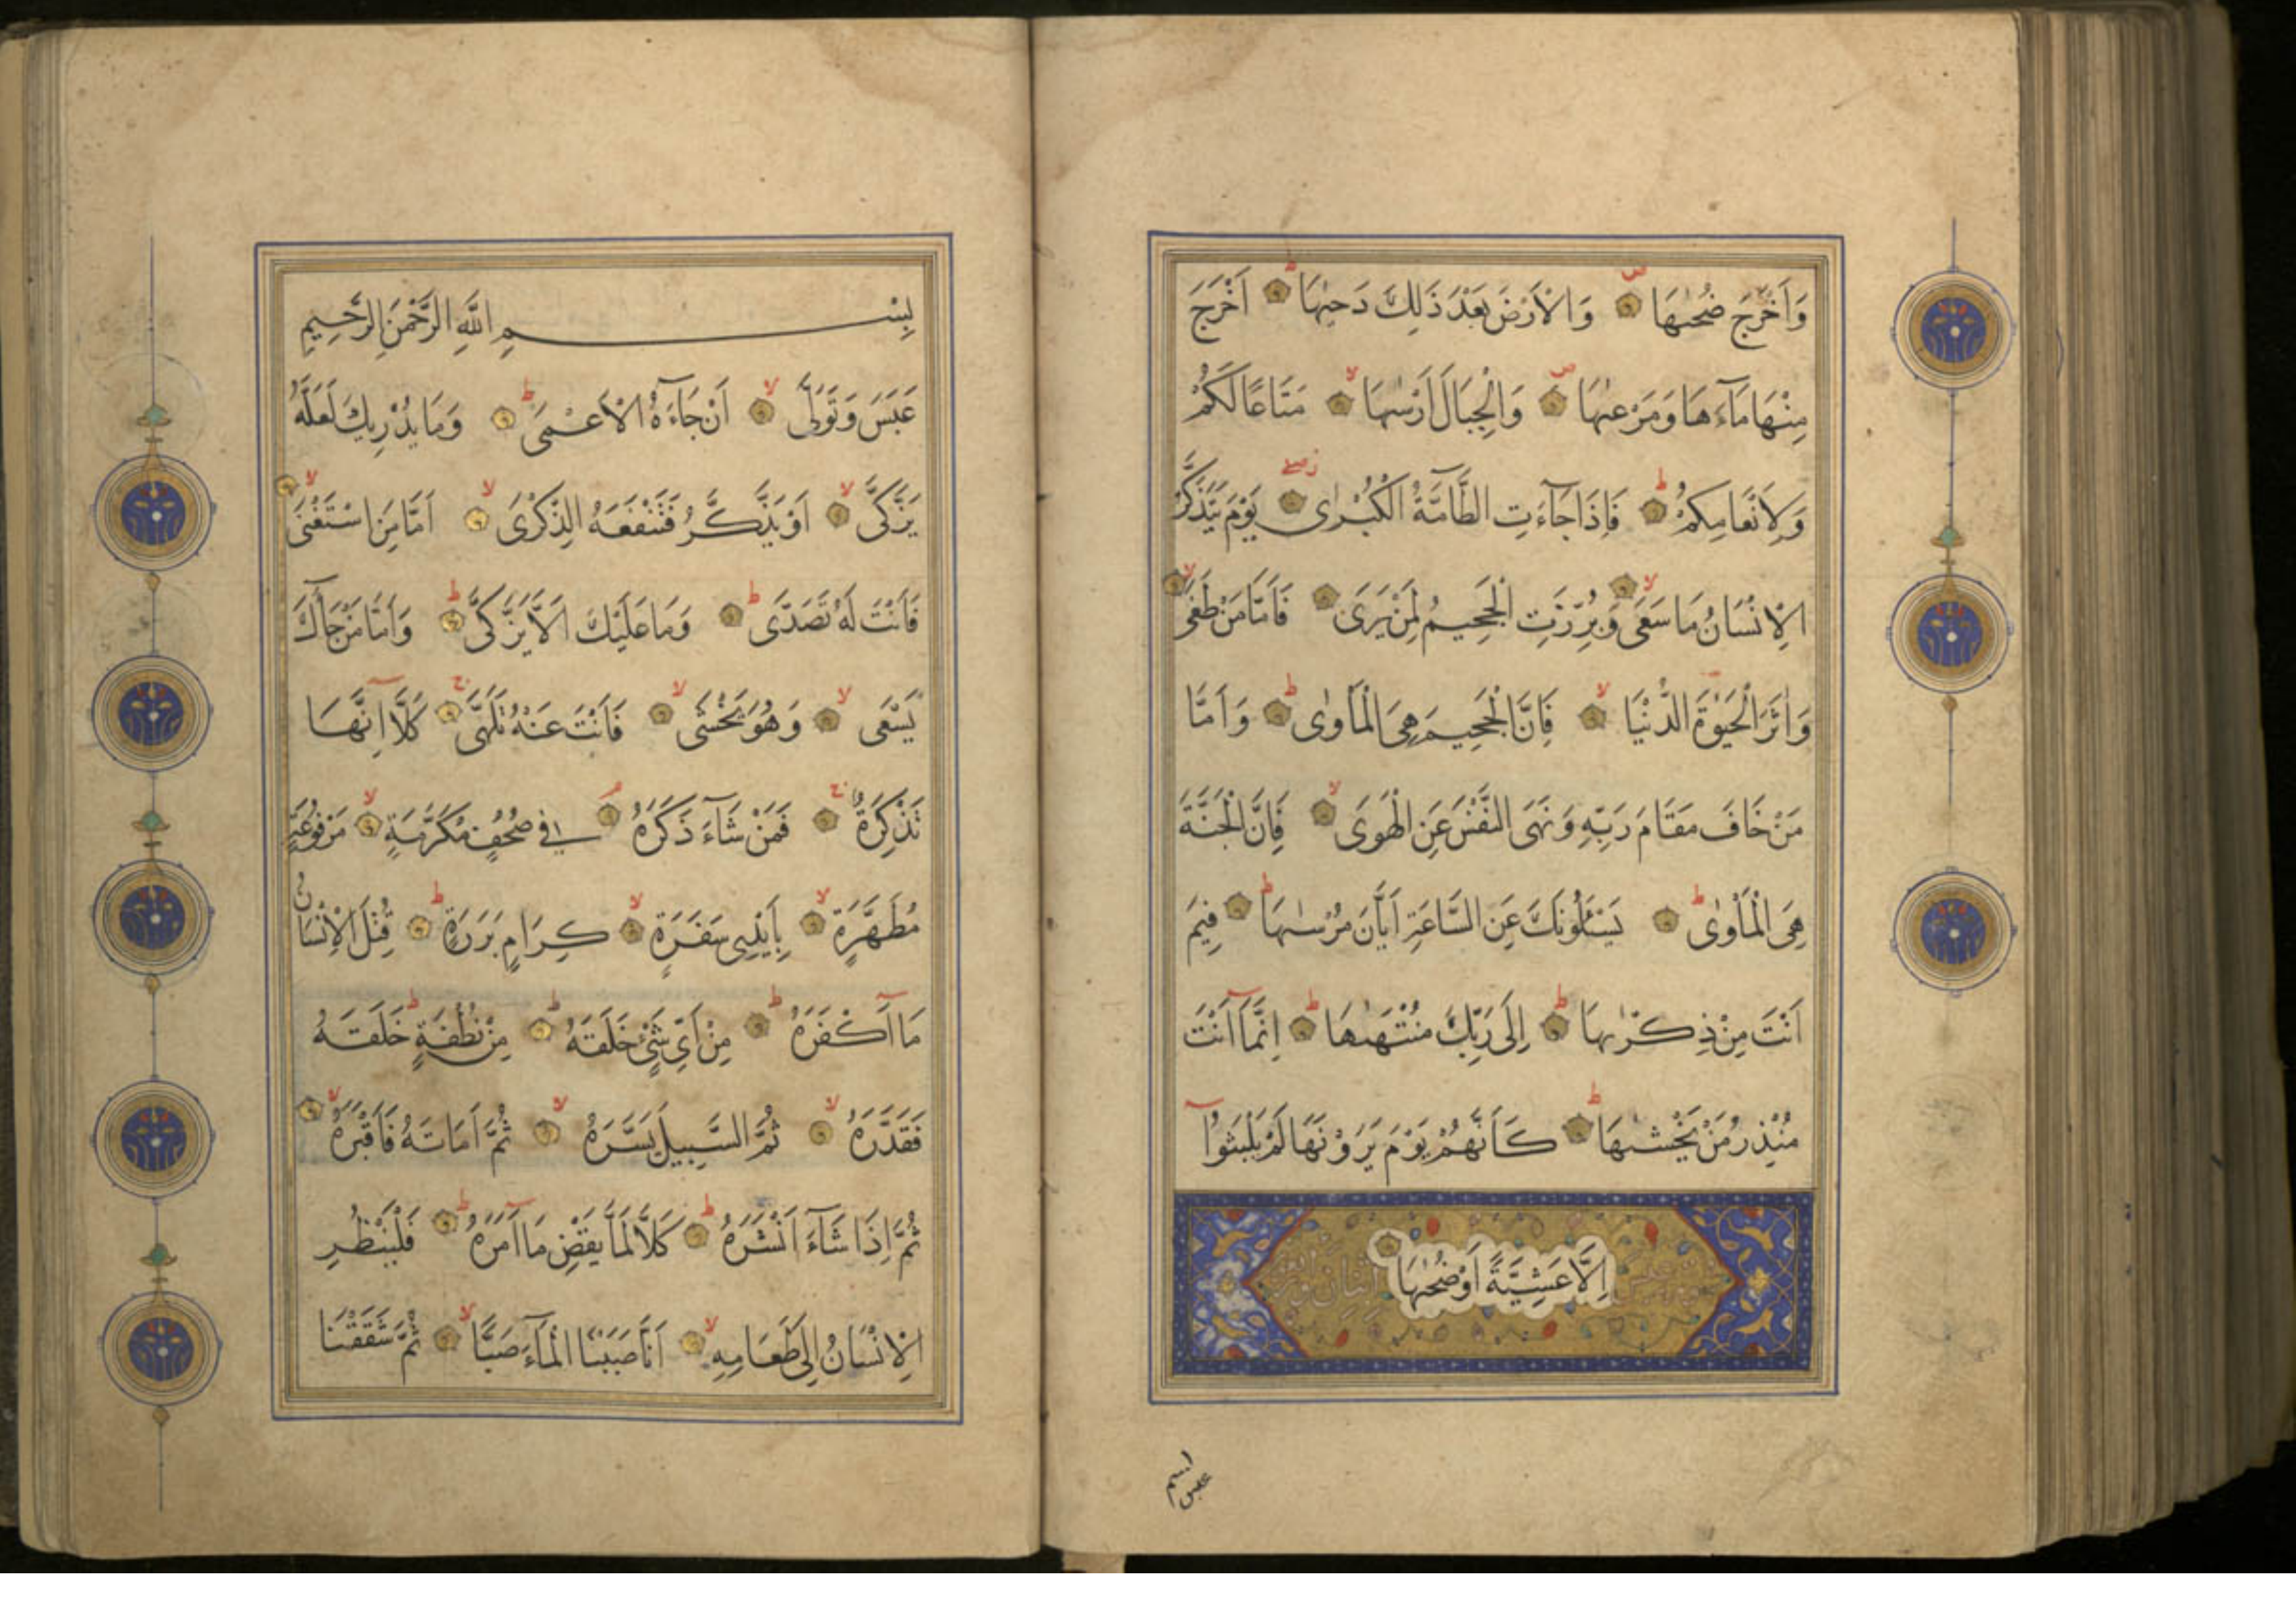 وَاَخْرَجَ ضُحٰيهَا وَالْاَرْضَ بَعْدَ ذٰلِكَ دَحٰيهَا اَخْرَجَ
مِنْهَا مَآءَهَا وَمَرْعٰيهَا وَالْجِبَالَ اَرْسٰيهَا مَتَاعًا لَكُمْ
وَلِاَنْعَامِكُمْ فَاِذَا جَآءَتِ الطَّآمَّةُ الْكُبْرٰى يَوْمَ يَتَذَكَّرُ
الْاِنْسَانُ مَا سَعَى وَبُرِّزَتِ الْجَحِيمُ لِمَنْ يَرَى فَاَمَّا مَنْ طَغَى
وَاٰثَرَ الْحَيٰوةَ الدُّنْيَا فَاِنَّ الْجَحِيمَ هِيَ الْمَأْوٰى وَاَمَّا
مَنْ خَافَ مَقَامَ رَبِّهِ وَنَهَى النَّفْسَ عَنِ الْهَوَى فَاِنَّ الْجَنَّةَ
هِيَ الْمَأْوٰى يَسْـَٔلُونَكَ عَنِ السَّاعَةِ اَيَّانَ مُرْسٰيهَا فِيمَ
اَنْتَ مِنْ ذِكْرٰيهَا اِلَى رَبِّكَ مُنْتَهٰيهَا اِنَّمَآ اَنْتَ
مُنْذِرُ مَنْ يَخْشٰيهَا كَاَنَّهُمْ يَوْمَ يَرَوْنَهَا لَمْ يَلْبَثُوٓا
اِلَّا عَشِيَّةً اَوْ ضُحٰيهَا
بسم
عبس
بِسْمِ اللّٰهِ الرَّحْمٰنِ الرَّحِيمِ
عَبَسَ وَتَوَلَّى اَنْ جَآءَهُ الْاَعْمَى وَمَا يُدْرِيكَ لَعَلَّهُ
يَزَّكَّى اَوْ يَذَّكَّرُ فَتَنْفَعَهُ الذِّكْرَى اَمَّا مَنِ اسْتَغْنَى
فَاَنْتَ لَهُ تَصَدَّى وَمَا عَلَيْكَ اَلَّا يَزَّكَّى وَاَمَّا مَنْ جَآءَكَ
يَسْعَى وَهُوَ يَخْشَى فَاَنْتَ عَنْهُ تَلَهَّى كَلَّآ اِنَّهَا
تَذْكِرَةٌ فَمَنْ شَآءَ ذَكَرَهُ فِي صُحُفٍ مُكَرَّمَةٍ مَرْفُوعَةٍ
مُطَهَّرَةٍ بِاَيْدِي سَفَرَةٍ كِرَامٍ بَرَرَةٍ قُتِلَ الْاِنْسَانُ
مَآ اَكْفَرَهُ مِنْ اَيِّ شَيْءٍ خَلَقَهُ مِنْ نُطْفَةٍ خَلَقَهُ
فَقَدَّرَهُ ثُمَّ السَّبِيلَ يَسَّرَهُ ثُمَّ اَمَاتَهُ فَاَقْبَرَهُ
ثُمَّ اِذَا شَآءَ اَنْشَرَهُ كَلَّا لَمَّا يَقْضِ مَآ اَمَرَهُ فَلْيَنْظُرِ
الْاِنْسَانُ اِلَى طَعَامِهِ اَنَّا صَبَبْنَا الْمَآءَ صَبًّا ثُمَّ شَقَقْنَا